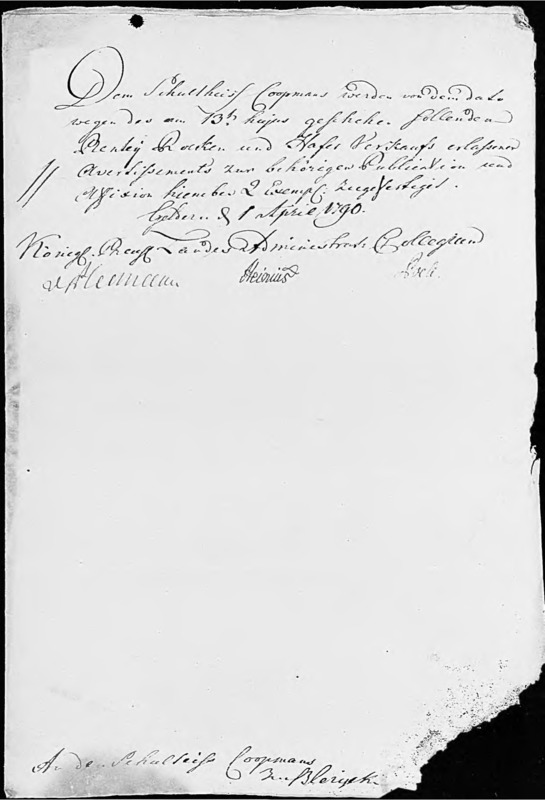 Dem Schultheiss Coopmans werden von dem dato
wegen des am 13th hujus geschehen sollenden
Rentey Rocken und Hafer Verkaufs erlassenen
Avertissements zur behörigen Publication und
Affixion hieneben 2 Exempl: zugefertigt.
Geldern d 1 April 1790.
Königl. Preuss Landes Administrat. Collegium
Heinius
An den Schultheiss Coopmans
Zu Blerick